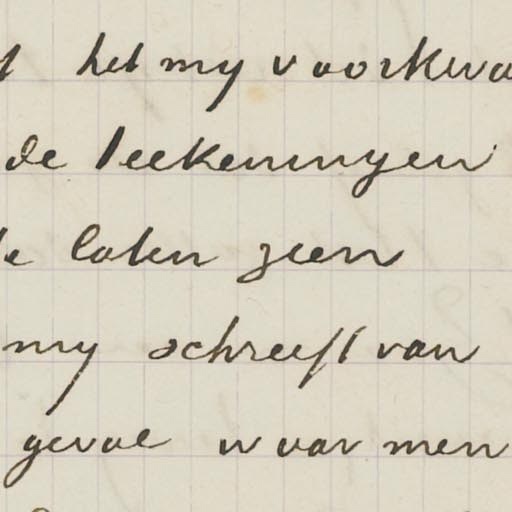 t het my voorkwa
de teekeningen
te laten zien
my schreeft van
geval waar men